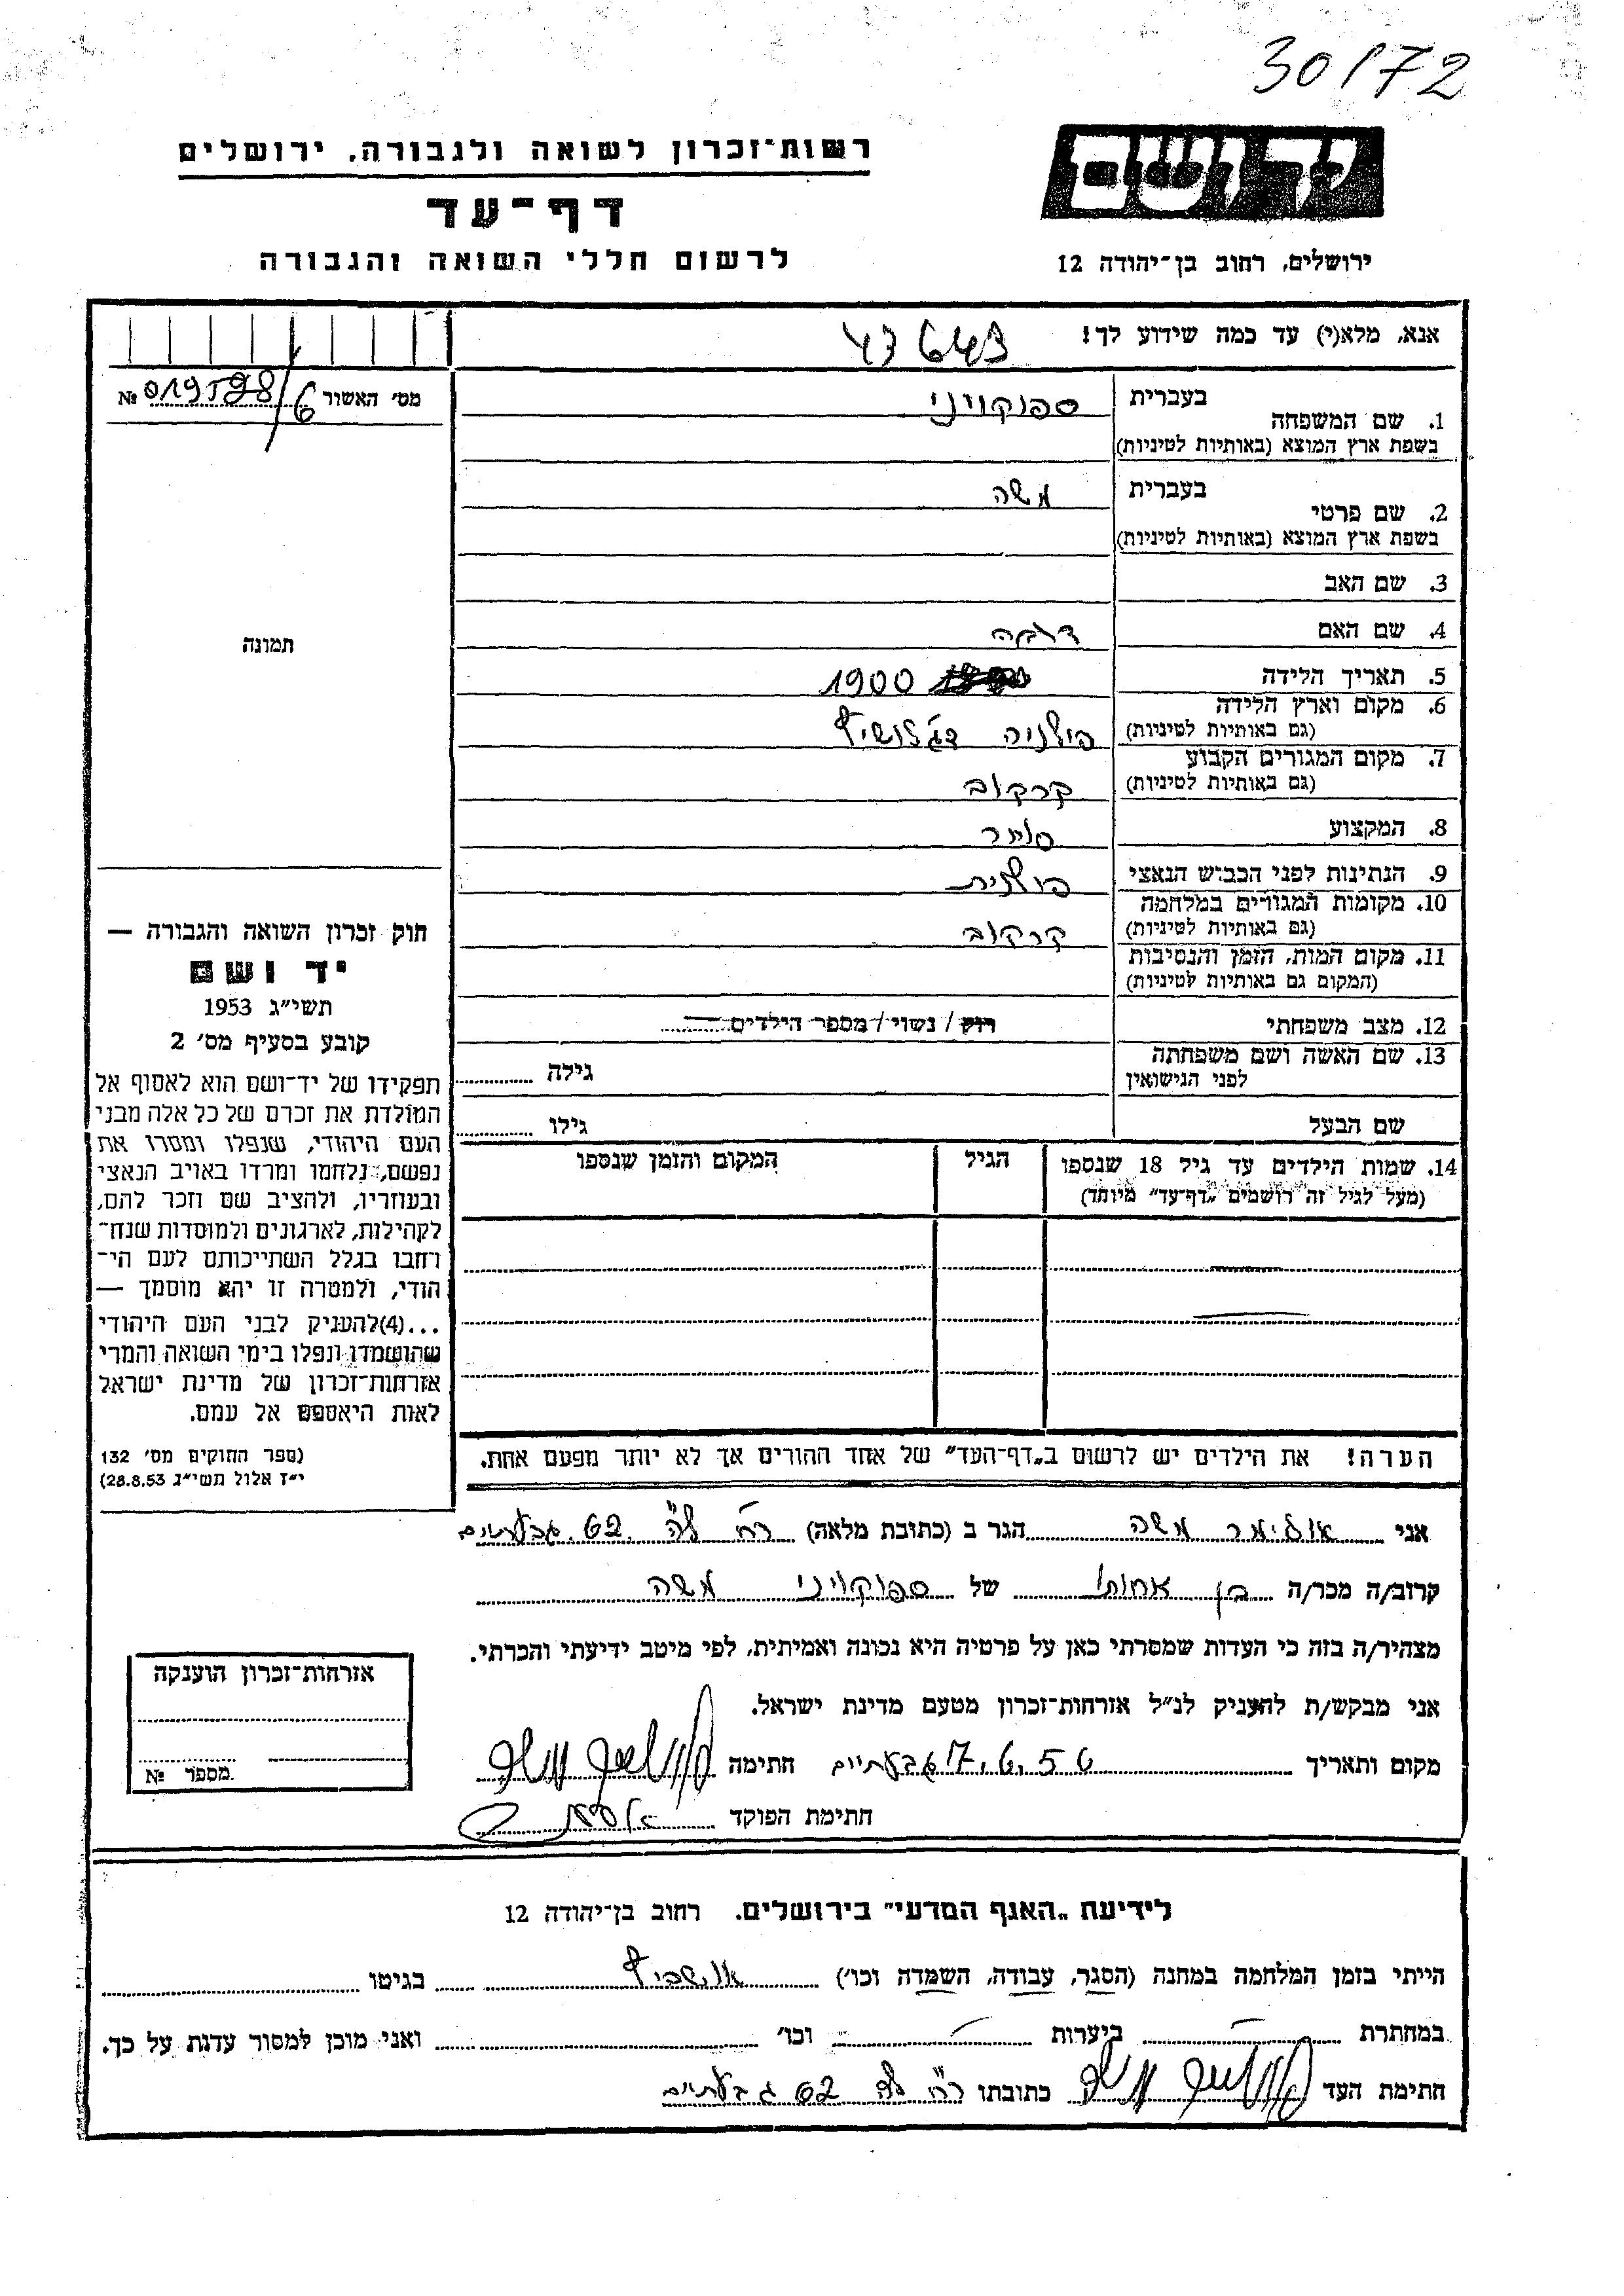 30/72
רשות־זכרון לשואה ולגבורה, ירושלים
ידושם
דף־עד
לרשום חללי השואה והגבורה
ירושלים, רחוב בן־יהודה 12
אנא, מלא(י) עד כמה שידוע לך!
מס׳ האשור 019598/6 №
בעברית
ספוקויני
1. שם המשפחה
בשפת ארץ המוצא (באותיות לטיניות)
בעברית
משה
2. שם פרטי
בשפת ארץ המוצא (באותיות לטיניות)
3. שם האב
4. שם האם
5. תאריך הלידה 1900
6. מקום וארץ הלידה
(גם באותיות לטיניות) פולניה
7. מקום המגורים הקבוע
(גם באותיות לטיניות) קרקוב
8. המקצוע סוחר
9. הנתינות לפני הכבוש הנאצי פולנית
10. מקומות המגורים במלחמה
(גם באותיות לטיניות) קרקוב
11. מקום המות, הזמן והנסיבות
(המקום גם באותיות לטיניות)
12. מצב משפחתי רוק / נשוי / מספר הילדים
13. שם האשה ושם משפחתה
לפני הנישואין גילה
שם הבעל גילו
14. שמות הילדים עד גיל 18 שנספו הגיל המקום והזמן שנספו
(מעל לגיל זה רושמים „דף־עד״ מיוחד)
הערה! את הילדים יש לרשום ב„דף־העד״ של אחד ההורים אך לא יותר מפעם אחת.
תמונה
חוק זכרון השואה והגבורה —
יד ושם
תשי״ג 1953
קובע בסעיף מס׳ 2
תפקידו של יד־ושם הוא לאסוף אל
המולדת את זכרם של כל אלה מבני
העם היהודי, שנפלו ומסרו את
נפשם, נלחמו ומרדו באויב הנאצי
ובעוזריו, ולהציב שם וזכר להם,
לקהילות, לארגונים ולמוסדות שנח־
רחבו בגלל השתייכותם לעם הי־
הודי, ולמטרה זו יהא מוסמך —
...(4)להעניק לבני העם היהודי
שהושמדו ונפלו בימי השואה והמרי
אזרחות־זכרון של מדינת ישראל
לאות היאספם אל עמם.
(ספר החוקים מס׳ 132
י״ז אלול תשי״ג 28.8.53)
אני משה הגר ב (כתובת מלאה) רח׳ לה״ 62 גבעתיים
קרוב/ה מכר/ה בן אחותו של ספוקויני משה
מצהיר/ה בזה כי העדות שמסרתי כאן על פרטיה היא נכונה ואמיתית, לפי מיטב ידיעתי והכרתי.
אני מבקש/ת להעניק לנ״ל אזרחות־זכרון מטעם מדינת ישראל.
מקום ותאריך 17.6.56 גבעתיים חתימה
חתימת הפוקד
אזרחות־זכרון הוענקה
מספר №
לידיעת „האגף המדעי״ בירושלים. רחוב בן־יהודה 12
הייתי בזמן המלחמה במחנה (הסגר, עבודה, השמדה וכו׳) אושביץ בגיטו
במחתרת ביערות וכו׳ ואני מוכן למסור עדות על כך.
חתימת העד כתובתו רח׳ לה״ 62 גבעתיים